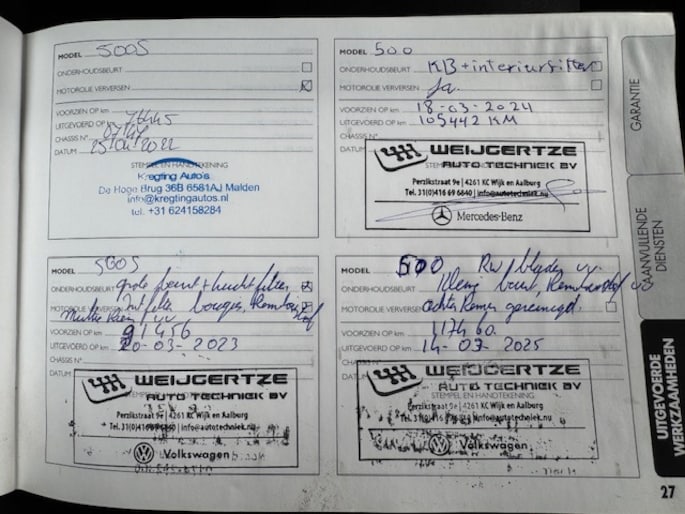 MODEL 500S
ONDERHOUDSBEURT
MOTOROLIE VERVERSEN
VOORZIEN OP km
UITGEVOERD OP km
CHASSIS N°
DATUM 25/04/2022
STEMPEL EN HANDTEKENING
Kregting Auto's
De Hoge Brug 36B 6581AJ Malden
info@kregtingautos.nl
tel. +31 624158284
MODEL 500
ONDERHOUDSBEURT KB + interieurfilter
MOTOROLIE VERVERSEN Ja.
VOORZIEN OP km 18-03-2024
UITGEVOERD OP km 105442 KM
CHASSIS N°
DATUM
WEIJGERTZE
AUTO TECHNIEK BV
Perzikstraat 9e | 4261 KC Wijk en Aalburg
Tel. 31(0)416 69 6640 | info@autotechniek.nu
Mercedes-Benz
MODEL 500S
ONDERHOUDSBEURT grote beurt + luchtfilter
MOTOROLIE VERVERSEN Int filter bougies, Remvloeistof
Multi Riem
VOORZIEN OP km 91456
UITGEVOERD OP km 20-03-2023
CHASSIS N°
DATUM
WEIJGERTZE
AUTO TECHNIEK BV
Perzikstraat 9e | 4261 KC Wijk en Aalburg
Volkswagen
MODEL 500 RW bladen vv
ONDERHOUDSBEURT Kleine beurt, Remvloeistof vv
MOTOROLIE VERVERSEN achter Remmen gereinigd.
VOORZIEN OP km 117460
UITGEVOERD OP km 14-03-2025
CHASSIS N°
DATUM
WEIJGERTZE
AUTO TECHNIEK BV
STEMPEL EN HANDTEKENING
Perzikstraat 9e | 4261 KC Wijk en Aalburg
Volkswagen
GARANTIE
AANVULLENDE
DIENSTEN
UITGEVOERDE
WERKZAAMHEDEN
27